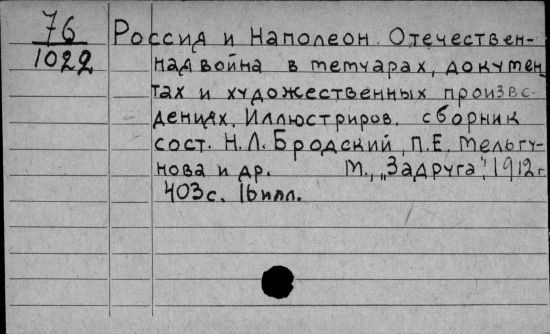 76
1022
Россия и Наполеон. Отечествен-
ная война в мемуарах, докумен-
тах и художественных произве-
дениях. Иллюстриров. сборник
сост. Н.Л. Бродский, П.Е. Мельгу-
нова и др. М., „Задруга", 1912 г.
403 с. 16 илл.